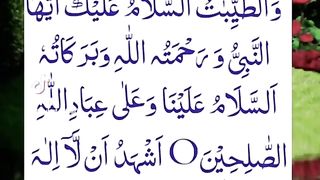 وَالطَّيِّبٰتُ اَلسَّلَامُ عَلَيْكَ اَيُّهَا
النَّبِيُّ وَرَحْمَتُہ اللّٰهِ وَبَرَكَاتُهٗ
اَلسَّلَامُ عَلَيْنَا وَعَلٰى عِبَادِ اللّٰهِ
الصّٰلِحِيْنَ○ اَشْهَدُ اَنْ لَّآ اِلٰهَ